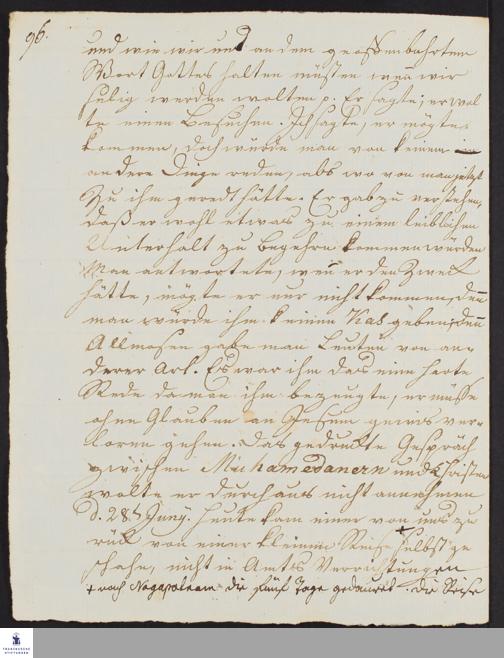 96.
und wie wir uns an dem geoffenbahrten
Wort Gottes halten müsten wen wir
selig werden wolten p. Er sagte, er wol
te einen besuchen. Ich sagte, er mögte
kommen, doch würde man von keinen
andere Dinge reden, als wovon man jetzt
zu ihm geredt hätte. Er gab zu verstehen,
daß er wohl etwas zu einem leiblichen
Unterhalt zu begehrn kommen würde
Man antwortete, wen er den Zweck
hätte, mögte er nur nicht kommen, den
man würde ihm keinen Kas geben, den
Allmosen gäbe man Leuten von an-
derer Art. Es war ihm das eine harte
Rede da man ihm bezeugte, er müsse
ohne Glauben an Jesum gewis ver-
loren gehen. Das gedruckte Gespräch
zwischen Muhamedanern und Christen
wolte er durchaus nicht annehmen
d. 28t Junÿ. Heute kam einer von uns zu
rück von einer kleinen Reise + selbst ge
schahe, nicht in Amts Verrichtungen
+ nach Nagapatnam die fünf Tage gedauret. Die Reise
FRANCKESCHE
STIFTUNGEN